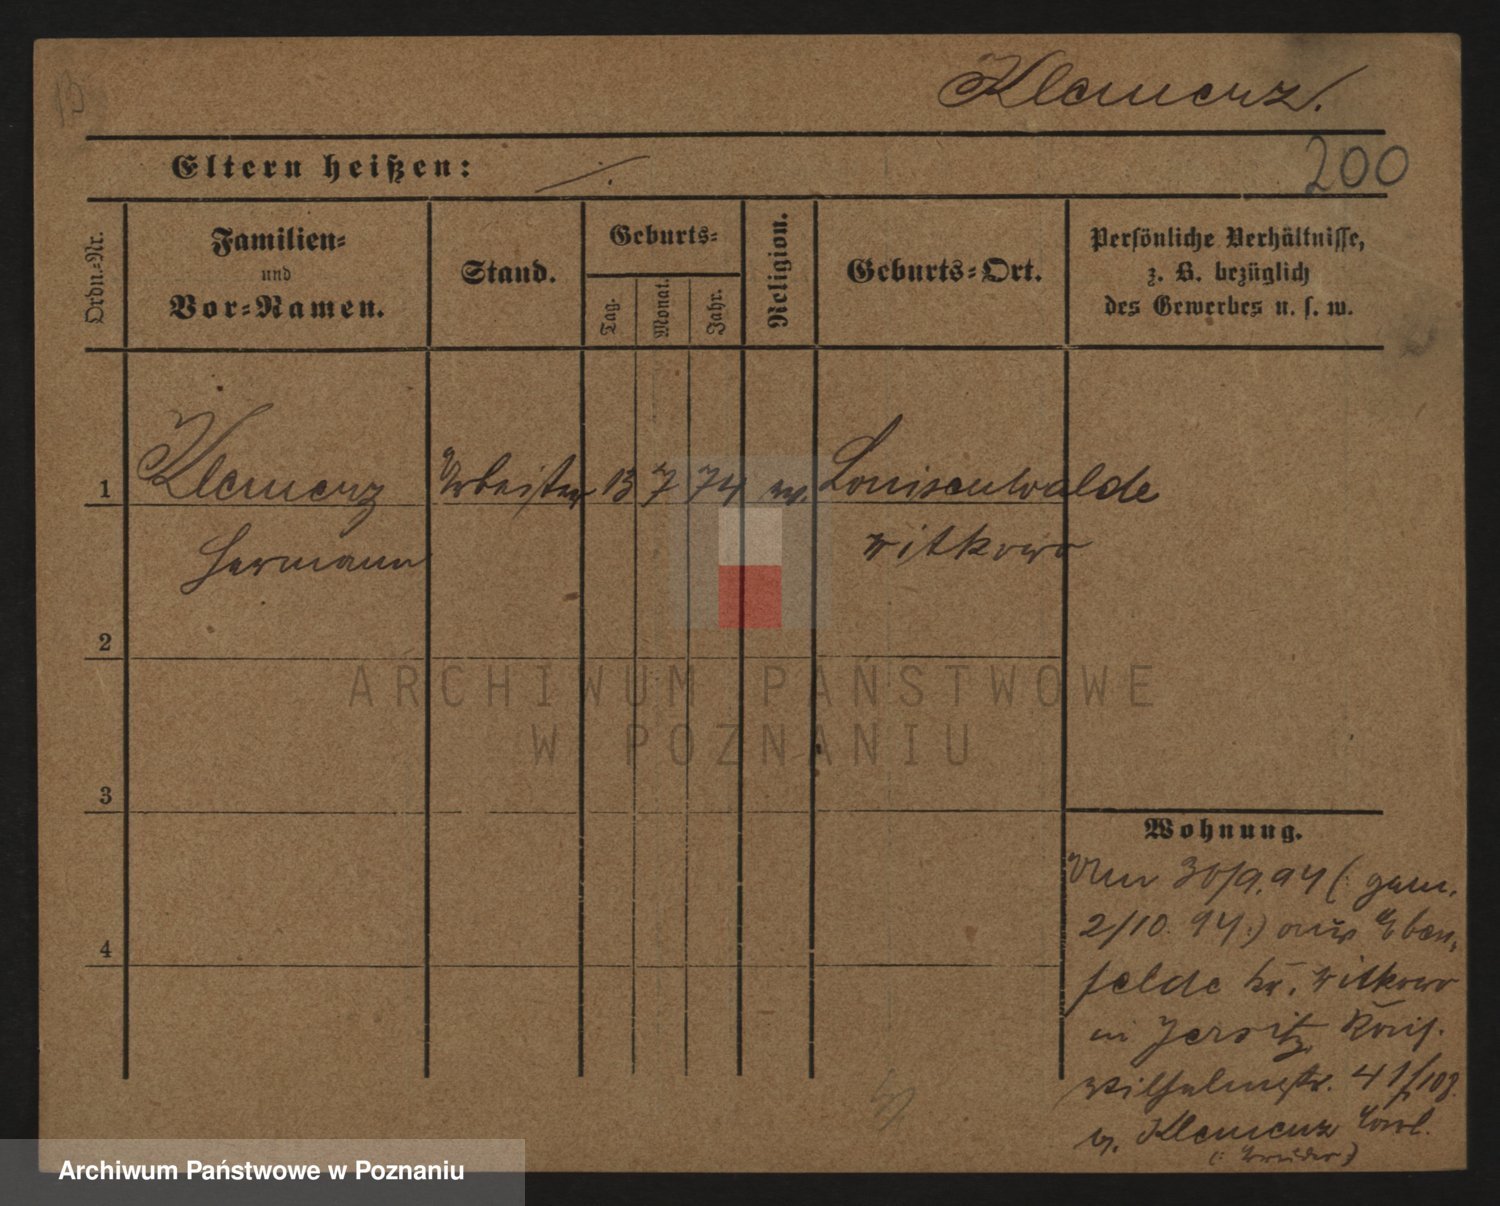 Klemenz.
200
Eltern heißen: ./.
Ordn.-Nr.
Familien-
und
Vor-Namen.
Stand.
Geburts-
Tag.
Monat.
Jahr.
Religion.
Geburts-Ort.
Persönliche Verhältnisse,
z. B. bezüglich
des Gewerbes u. s. w.
1 Klemenz Arbeiter 13 7 74 ev. Louisenwalde
Hermann Witkowo
2
ARCHIWUM PAŃSTWOWE
W POZNANIU
3
Wohnung.
Vom 30/9. 94 (gem.
2/10. 94.) aus Eben-
4
felde Kr. Witkowo
in Jersitz, König.
Wilhelmstr. 41
b. Klemenz Carl.
(: Bruder :)
Archiwum Państwowe w Poznaniu